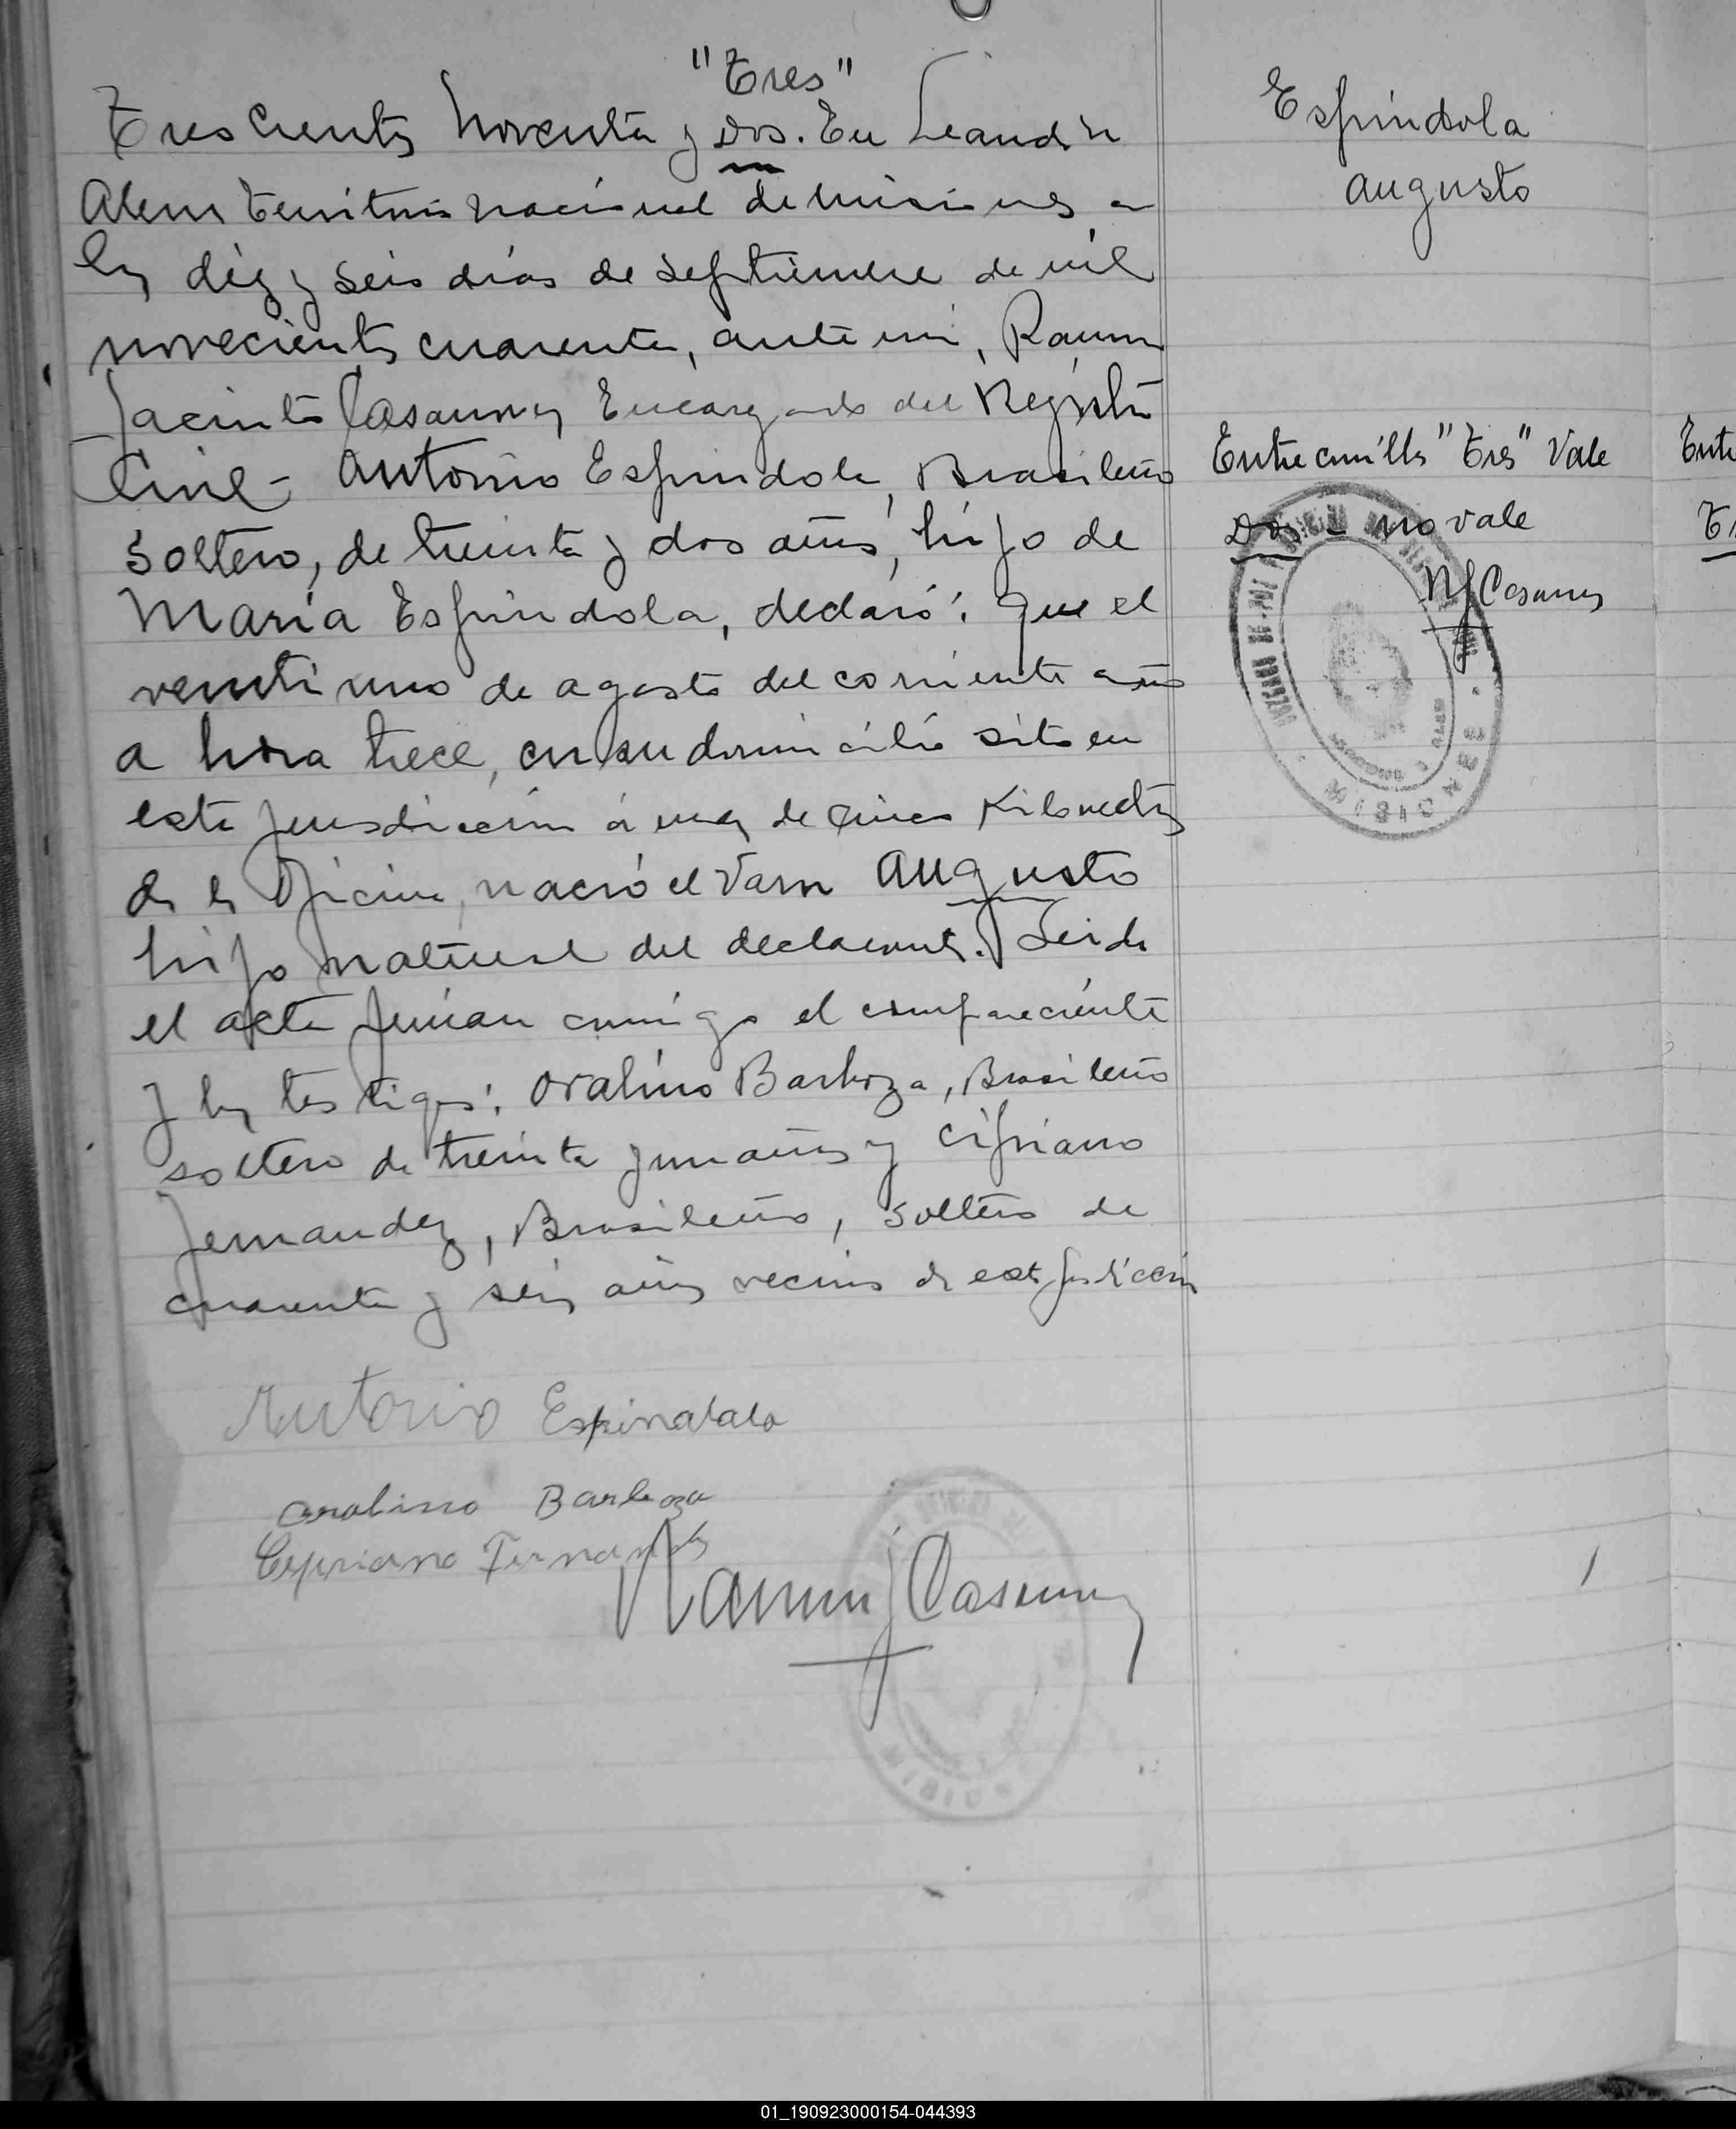 "Tres"
Trescientos Noventa y Dos. En Leandro
Alem Territorio nacional de Misiones a
los diez y seis días de septiembre de mil
novecientos cuarenta, ante mi, Ramon
Jacinto Casaurang Encargado del Registro
Civil - Antonio Espindola, Brasileño
soltero, de treinta y dos años, hijo de
María Espindola, declaró: que el
veintiuno de agosto del corriente año
a hora trece, en su domicilio sito en
esta jurisdiccion á mas de cinco Kilometros
de la Oficina, nació el Varon Augusto
hijo natural del declarante. Leida
el acta firman conmigo el compareciente
y los testigos: Oralino Barboza, Brasileño
soltero de treinta y un años y Cipriano
Fernandez, Brasileño, soltero de
cuarenta y seis años vecinos de esta
Antonio Espinalala
Oralino Barboza
Cipriano
Ramon J Casaurang
Espindola
Augusto
Entre comillas "Tres" Vale
Dos - no vale
RJ Casaurang
MISIONES
01_190923000154-044393